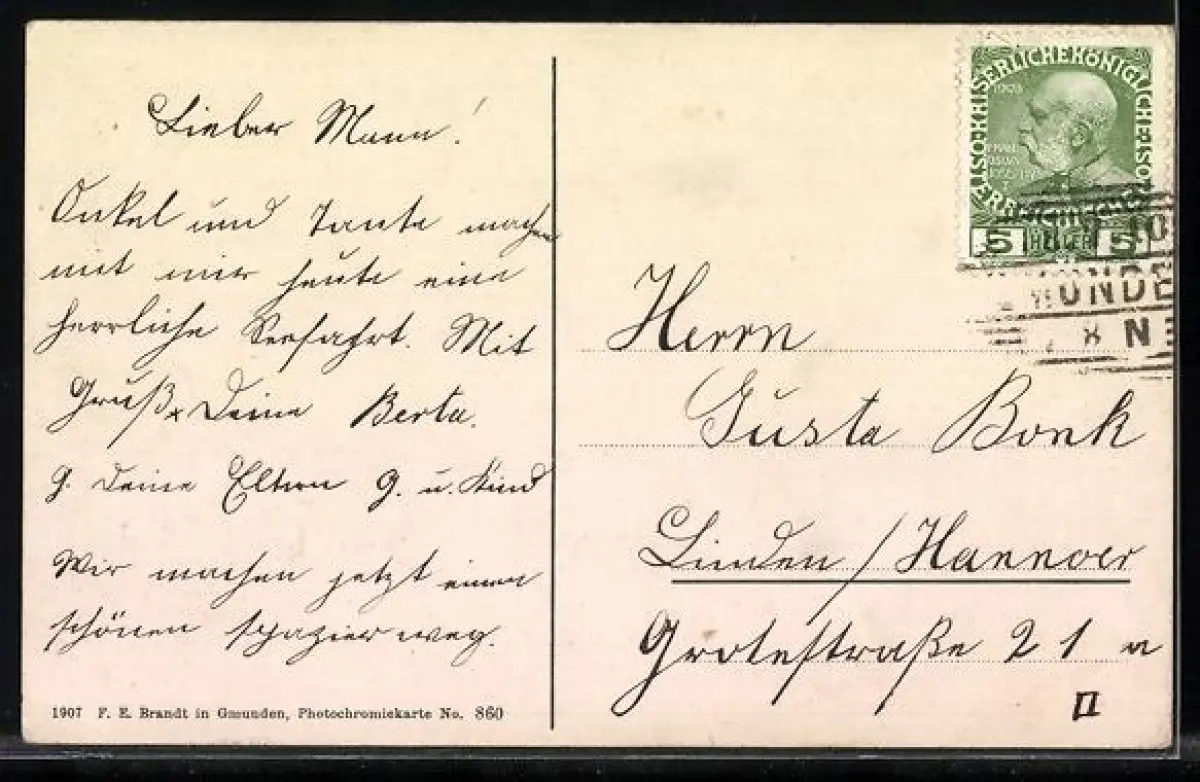 Lieber Mann!
Onkel und Tante machen
mit mir heute eine
herrliche Seefahrt. Mit
Gruß Deine Berta.
g. Deine Eltern G. u. Kind
Wir machen jetzt einen
schönen spazier weg.
1907 F. E. Brandt in Gmunden, Photochromiekarte No. 860
KAISERLICHE KÖNIGLICHE ÖSTERREICHISCHE
1908
5 HELLER 5
10
MUNDE
8 N
Herrn
Gusta Bonk
Linden / Hannover
Grotestraße 21 a
II